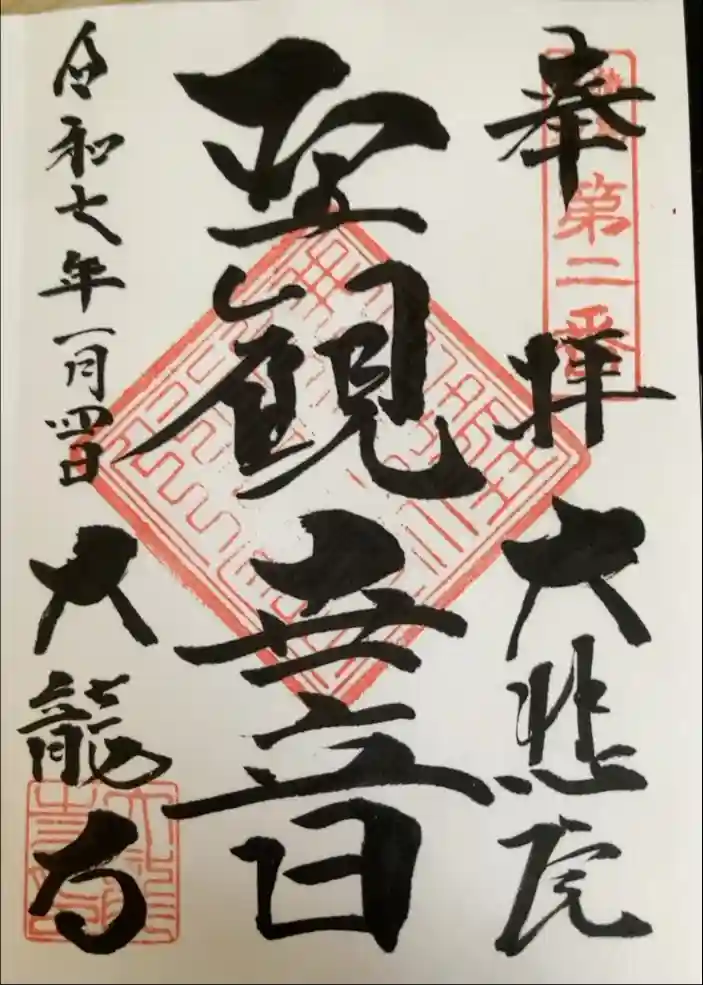 第二番
奉拝 大悲
聖観世音
令和七年一月四日 大龍寺